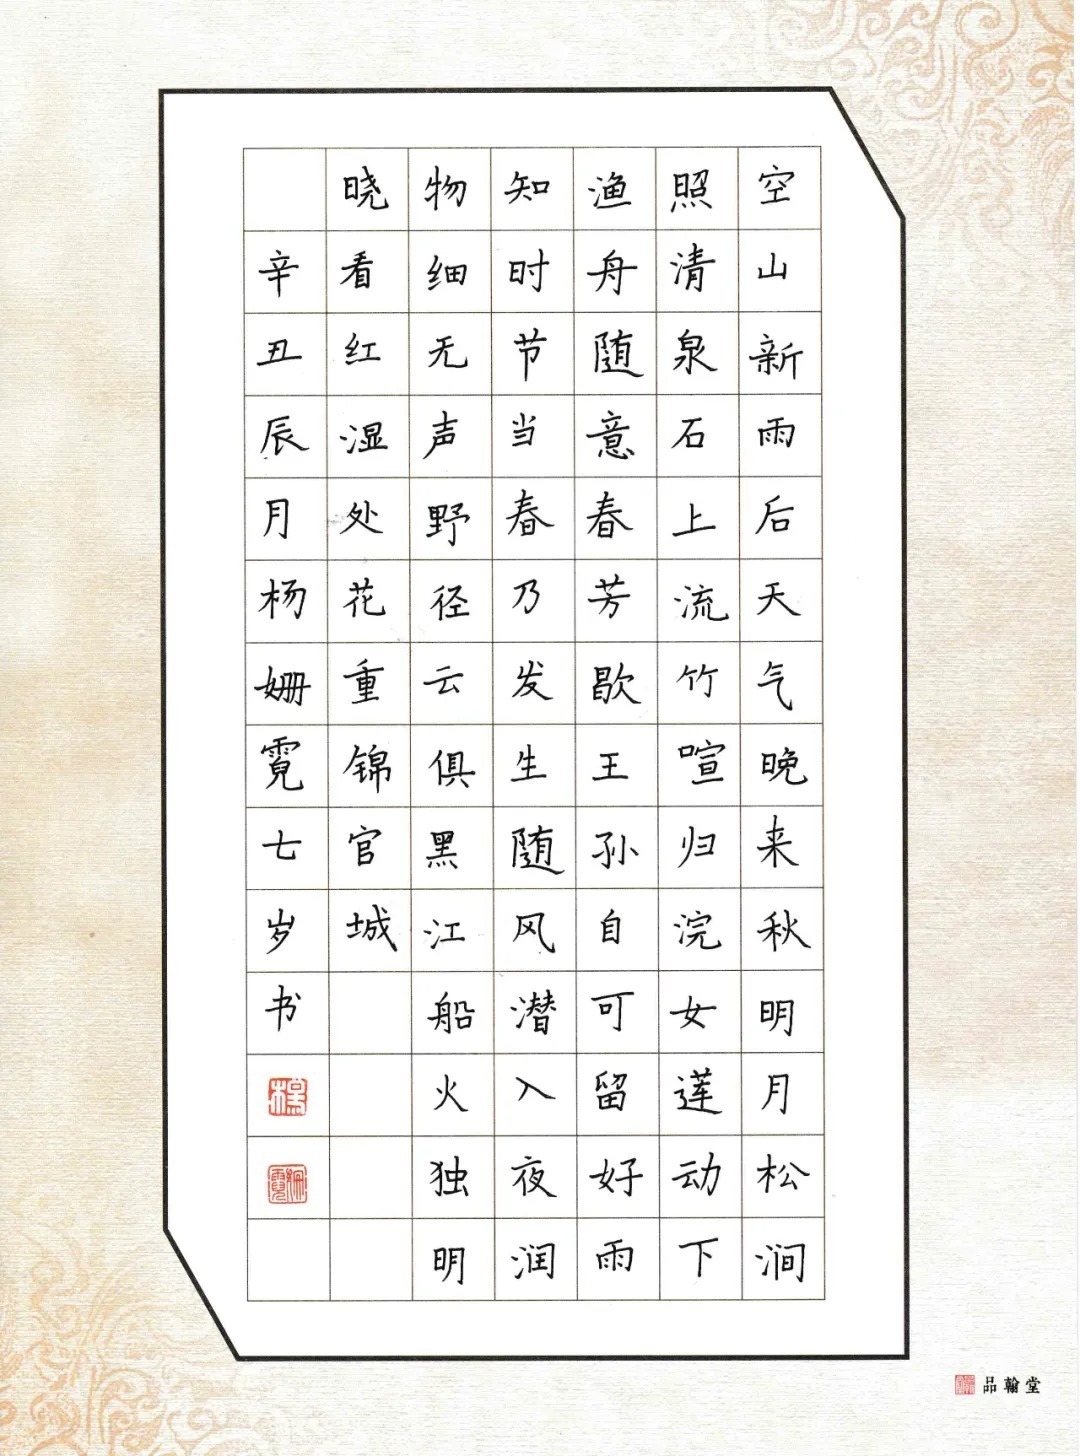 空山新雨后天气晚来秋明月松涧
照清泉石上流竹喧归浣女莲动下
渔舟随意春芳歇王孙自可留好雨
知时节当春乃发生随风潜入夜润
物细无声野径云俱黑江船火独明
晓看红湿处花重锦官城
辛丑辰月杨姗霓七岁书
品翰堂